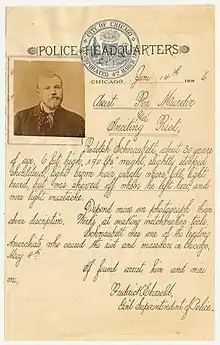 CITY OF CHICAGO
INCORPORATED 4th MARCH
POLICE HEADQUARTERS
CHICAGO, June 14th 1886
Arrest For Murder
and
Inciting Riot,
Rudolph Schnaubelt, about 30 years
of age, 6 feet high, 190 lbs weight, slightly stooped
shouldered, light brown hair, usually wore full, light
beard, but was shaved off when he left here, and
wore light mustache.
Depend more on photograph than
above description. Works at making machinists tools.
Schnaubelt was one of the leading
Anarchists who caused the riot and murders in Chicago,
May 4th
If found arrest him and wire
me,
Frederick Ebersold,
Genl Superintendent of Police.